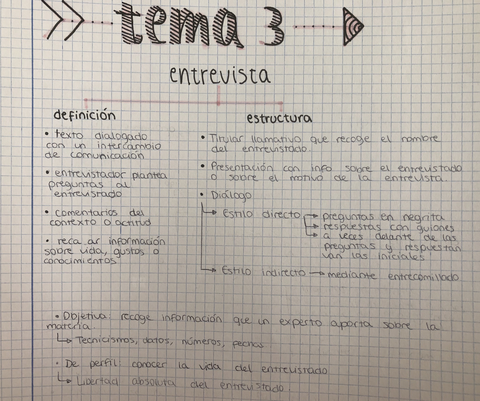 tema 3
entrevista
definición
• texto dialogado
con un intercambio
de comunicación
• entrevistador plantea
preguntas al
entrevistado
• comentarios del
contexto o actitud
• recabar información
sobre vida, gustos o
conocimientos
estructura
• Titular llamativo que recoge el nombre
del entrevistado
• Presentación con info sobre el entrevistado
o sobre el motivo de la entrevista
• Diálogo
Estilo directo → preguntas en negrita
→ respuestas con guiones
→ a veces delante de las
preguntas y respuestan
van las iniciales
Estilo indirecto → mediante entrecomillado
• Objetiva: recoge información que un experto aporta sobre la
materia.
Tecnicismos, datos, números, fechas
• De perfil: conocer la vida del entrevistado
Libertad absoluta del entrevistado